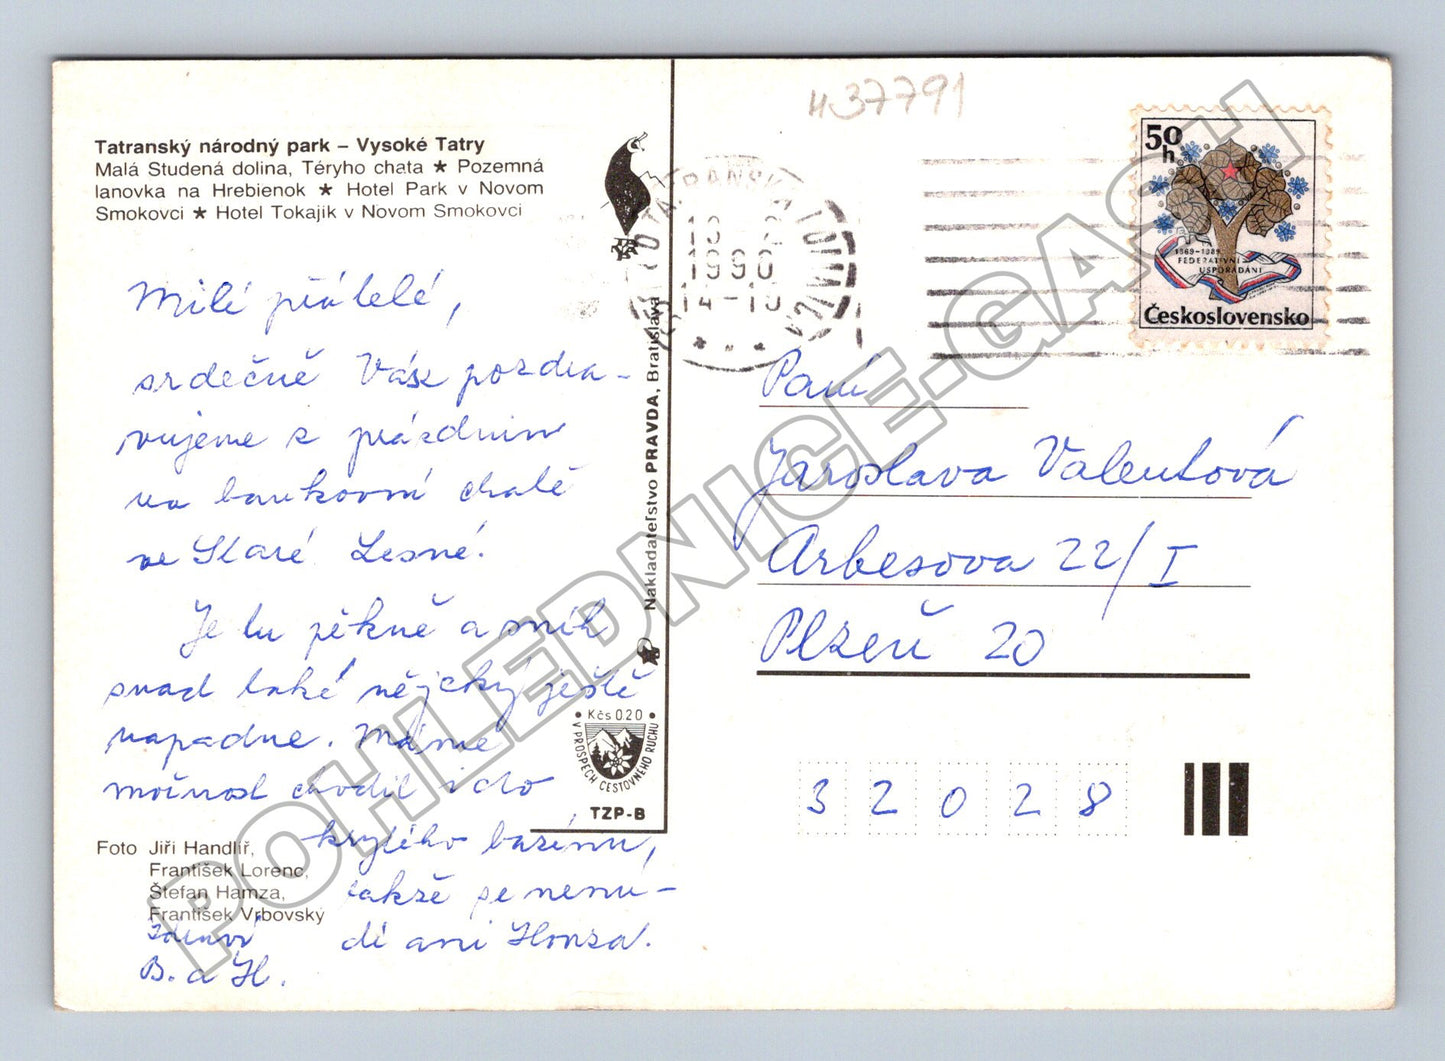 437791
Tatranský národný park – Vysoké Tatry
Malá Studená dolina, Téryho chata ★ Pozemná
lanovka na Hrebienok ★ Hotel Park v Novom
Smokovci ★ Hotel Tokajik v Novom Smokovci
Milí přátelé,
srdečně Vás pozdra-
vujeme z prázdnin
na bankovní chatě
ve Staré Lesné.
Je tu pěkně a sníh
snad také nějaký ještě
napadne. Máme
možnost chodit i do
krytého bazénu,
takže se nenu-
dí ani Honza.
Zdraví
B. a H.
Foto Jiří Handlíř,
František Lorenc,
Štefan Hamza,
František Vrbovský
Nakladateľstvo PRAVDA, Bratislava
• Kčs 0.20 •
V PROSPECH CESTOVNÉHO RUCHU
TZP-B
TATRANSKÁ LOMNICA
1990
50
h
1969–1989
FEDERATIVNÍ
USPOŘÁDÁNÍ
Československo
Paní
Jaroslava Valentová
Arbesova 22/I
Plzeň 20
3 2 0 2 8
POHLEDNICE.GASH